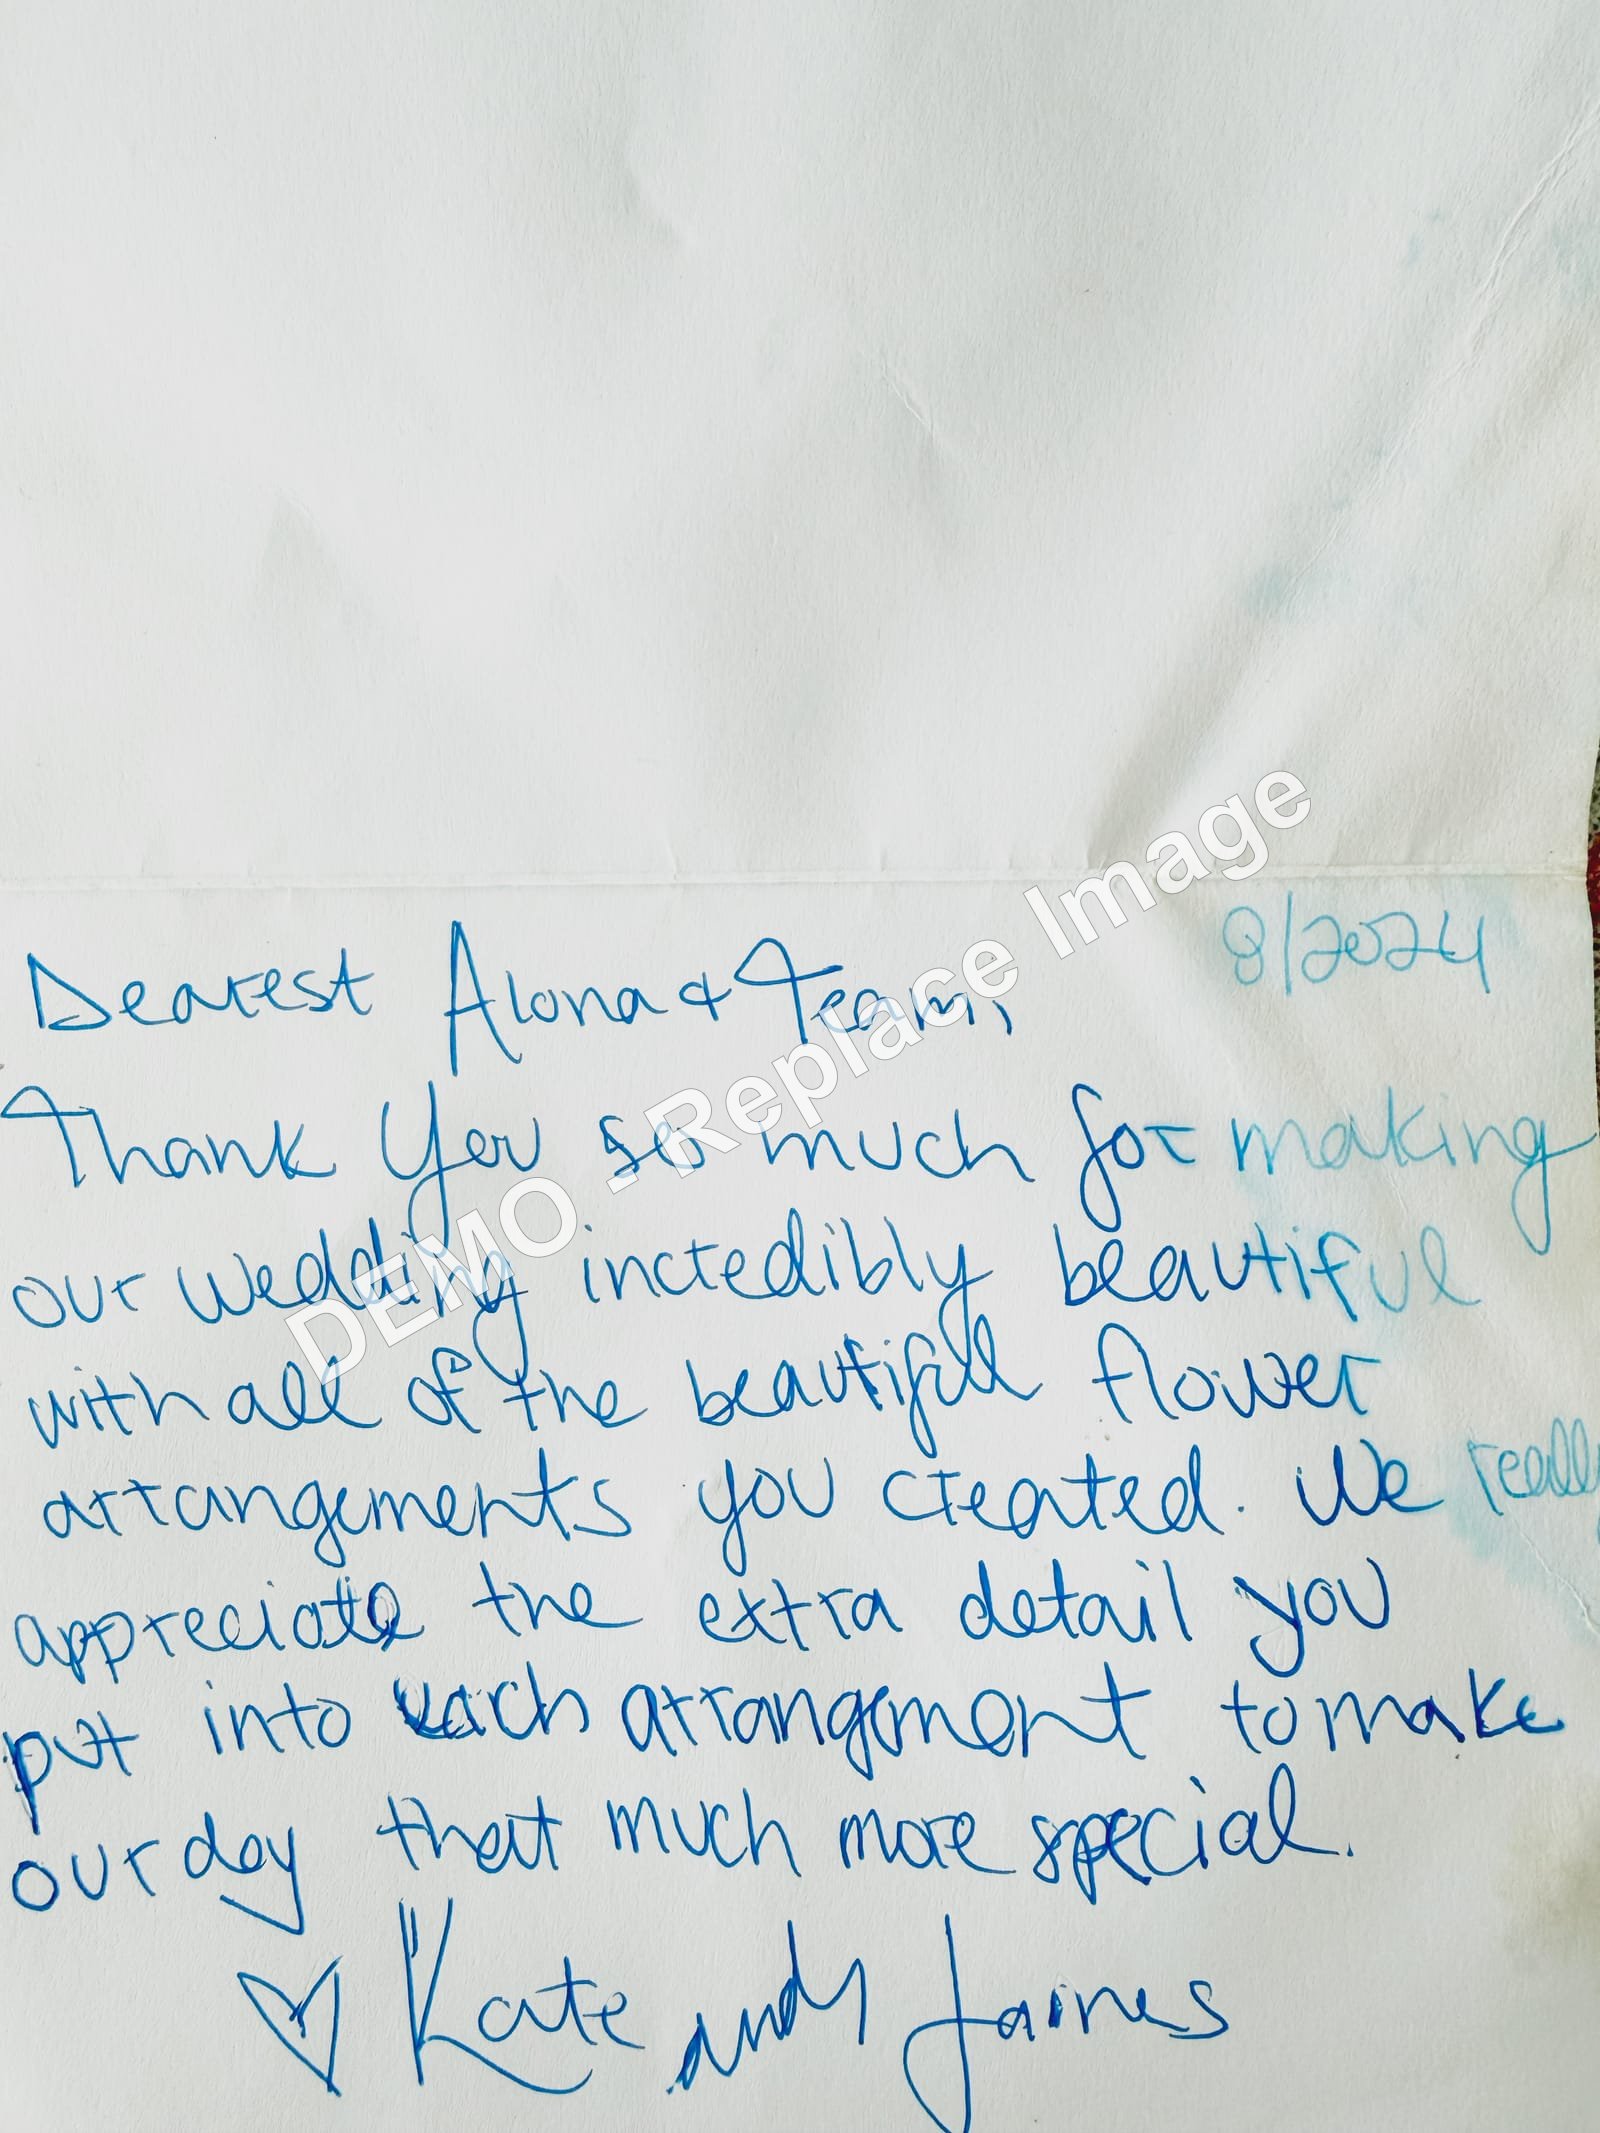 8/2024
Dearest Alona & Team,
Thank You so much for making
our wedding incredibly beautiful
with all of the beautiful flower
arrangements you created. We really
appreciate the extra detail you
put into each arrangement to make
our day that much more special.
♡ Kate and James
DEMO - Replace Image